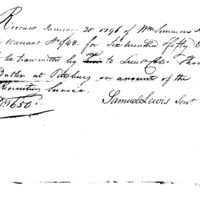 Received January 30 1796 of Wm Simmons A
Warrant No 548. for Six hundred fifty D
be transmitted by to Lieut Colo Thos
Butler at Pittsburg on account of the
Recruiting Service
Ds 650
Samuel Lewis Senr